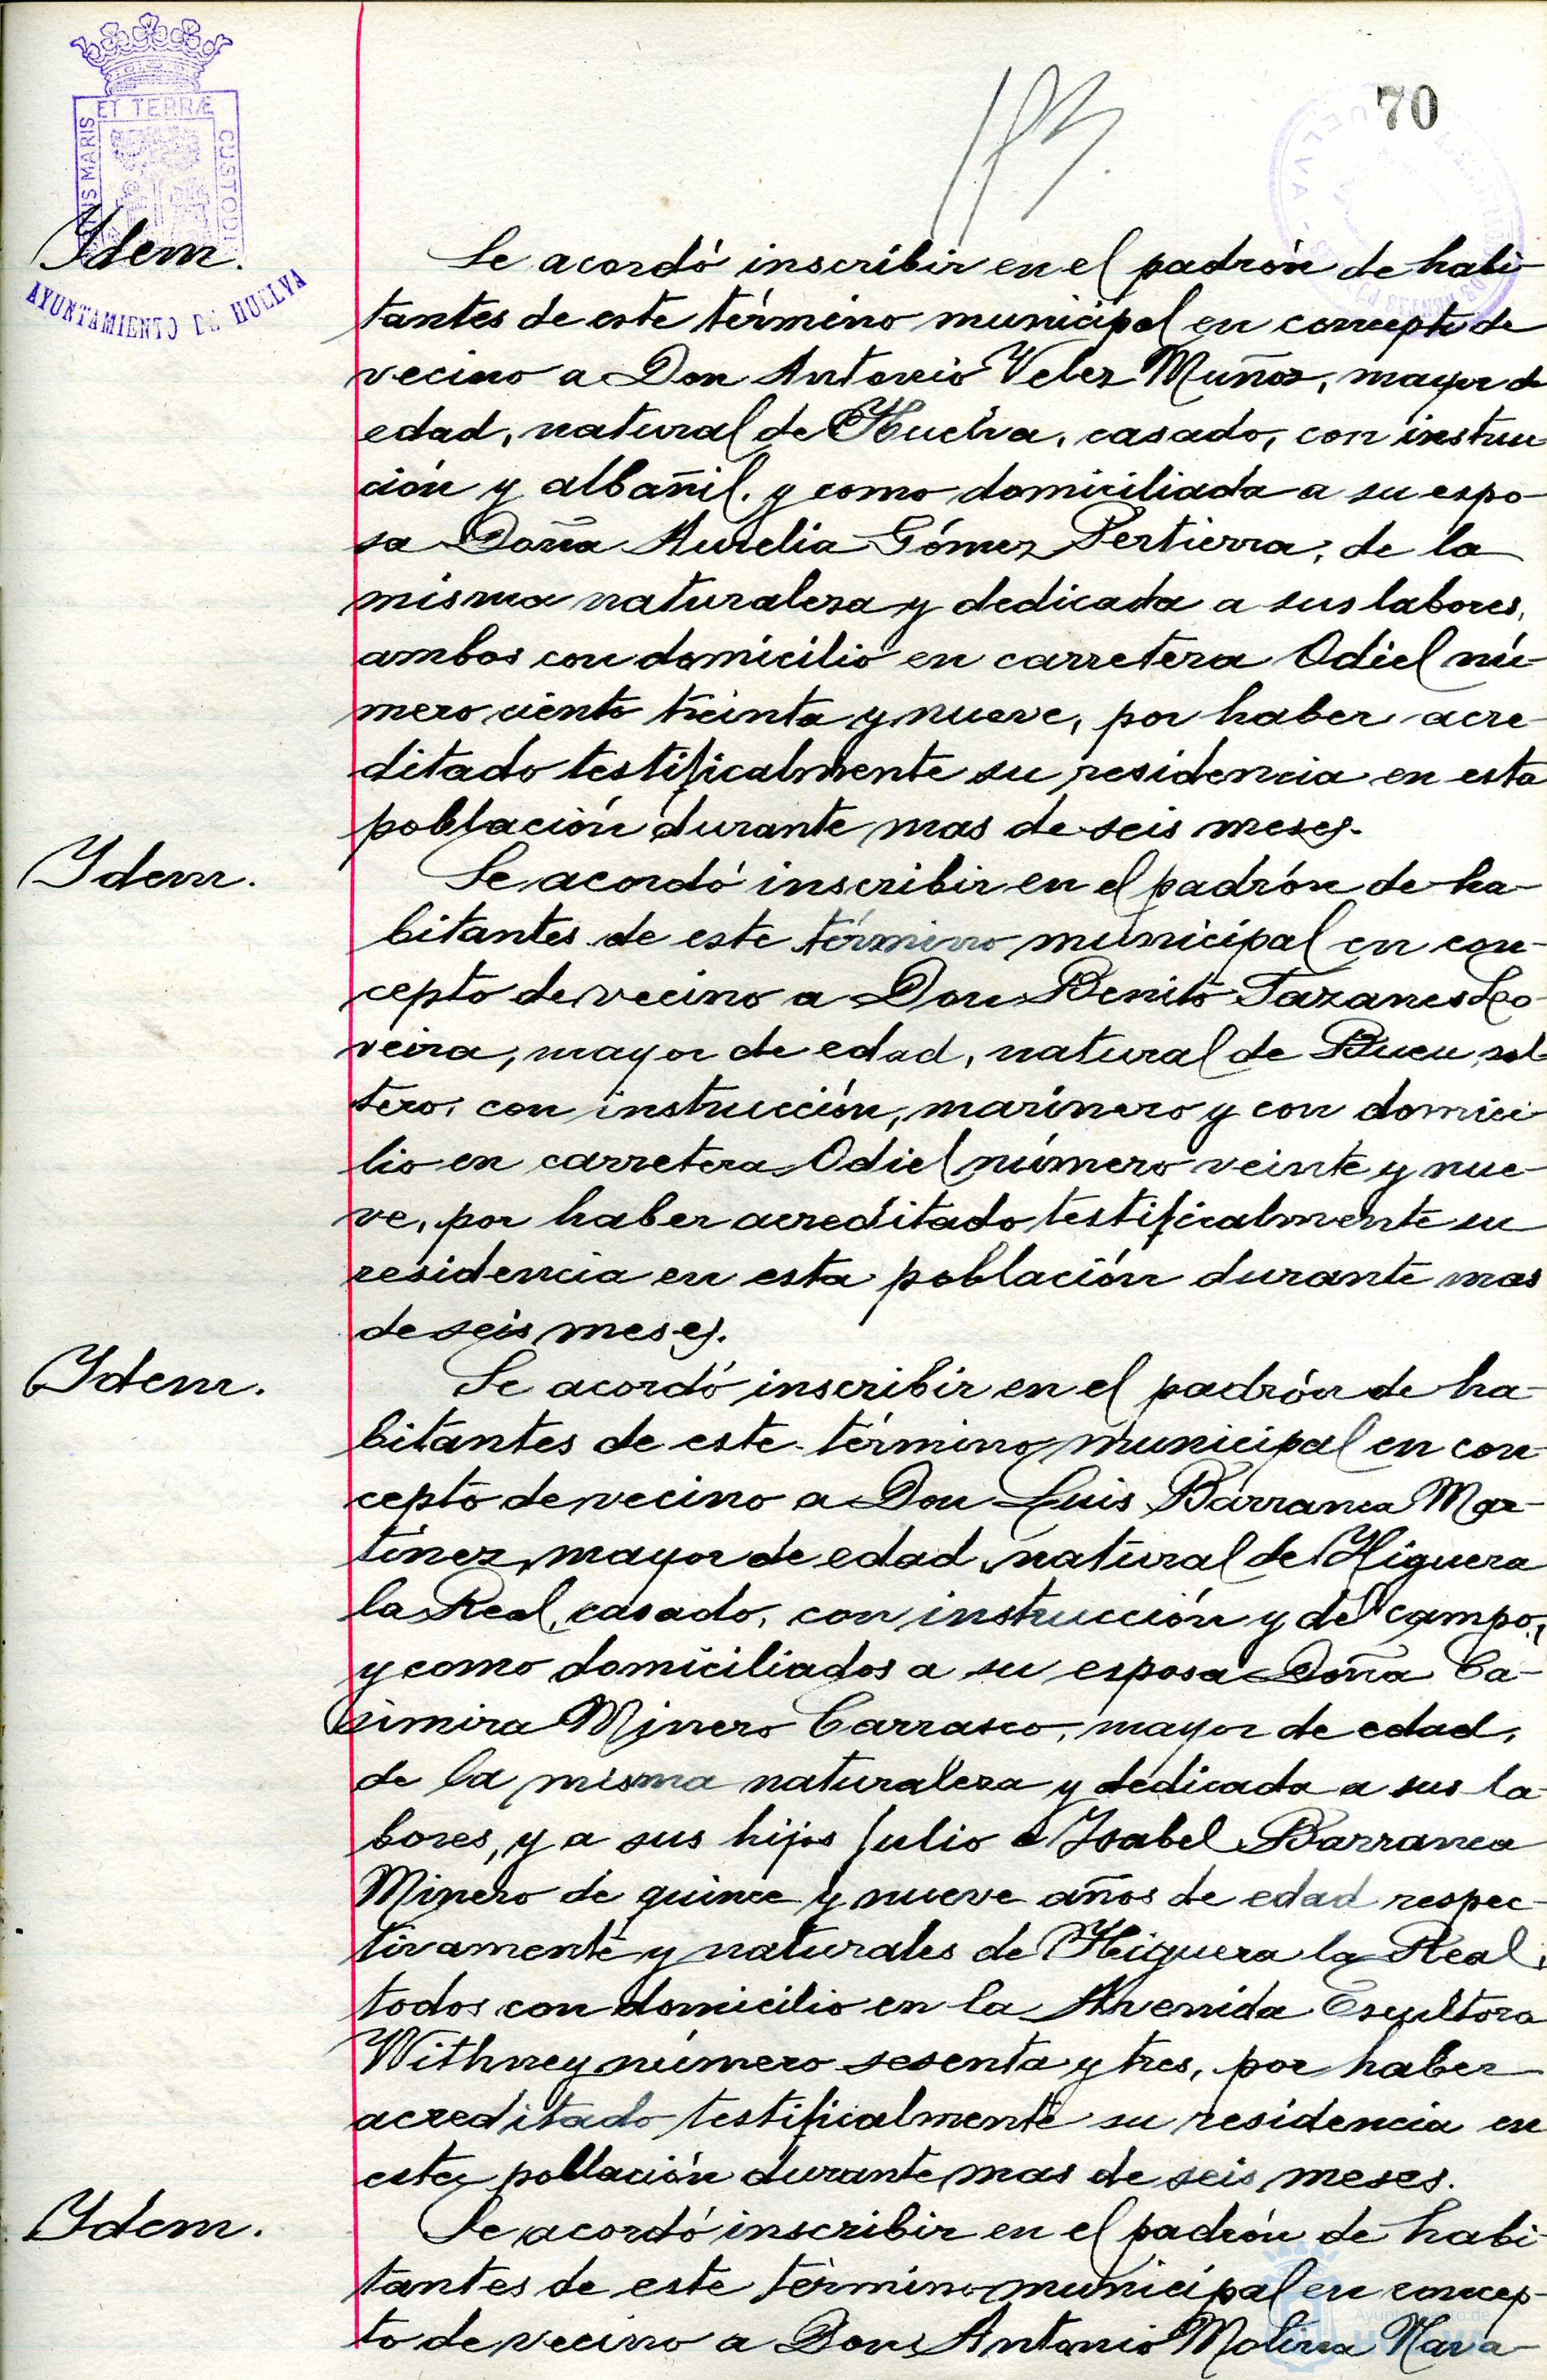 70
ET TERRÆ
US MARIS
CUSTODI
AYUNTAMIENTO DE HUELVA
Ydem.
Se acordó inscribir en el padrón de habi-
tantes de este término municipal en concepto de
vecino a Don Antonio Velez Muñoz, mayor de
edad, natural de Huelva, casado, con instruc
ción y albañil, y como domiciliada a su espo-
sa Doña Aurelia Gómez Pertierra, de la
misma naturaleza y dedicada a sus labores,
ambos con domicilio en carretera Odiel nú-
mero ciento treinta y nueve, por haber acre-
ditado testificalmente su residencia en esta
población durante mas de seis meses.
Ydem.
Se acordó inscribir en el padrón de ha-
bitantes de este término municipal en con-
cepto de vecino a Don Benito Tazanes Lo-
veira, mayor de edad, natural de Bueu, sol-
tero, con instrucción, marinero y con domici-
lio en carretera Odiel número veinte y nue-
ve, por haber acreditado testificalmente su
residencia en esta población durante mas
de seis meses.
Ydem.
Se acordó inscribir en el padrón de ha-
bitantes de este término municipal en con-
cepto de vecino a Don Luis Barranca Mar-
tínez, mayor de edad, natural de Higuera
la Real, casado, con instrucción y del campo,
y como domiciliados a su esposa Doña Ca-
simira Minero Carrasco, mayor de edad,
de la misma naturaleza y dedicada a sus la-
bores, y a sus hijos Julio e Ysabel Barranca
Minero de quince y nueve años de edad respec-
tivamente y naturales de Higuera la Real,
todos con domicilio en la Avenida Escultora
Withney número sesenta y tres, por haber
acreditado testificalmente su residencia en
esta población durante mas de seis meses.
Ydem.
Se acordó inscribir en el padrón de habi-
tantes de este término municipal en concep-
to de vecino a Don Antonio Molina Nava-
Ayuntamiento de
HUELVA